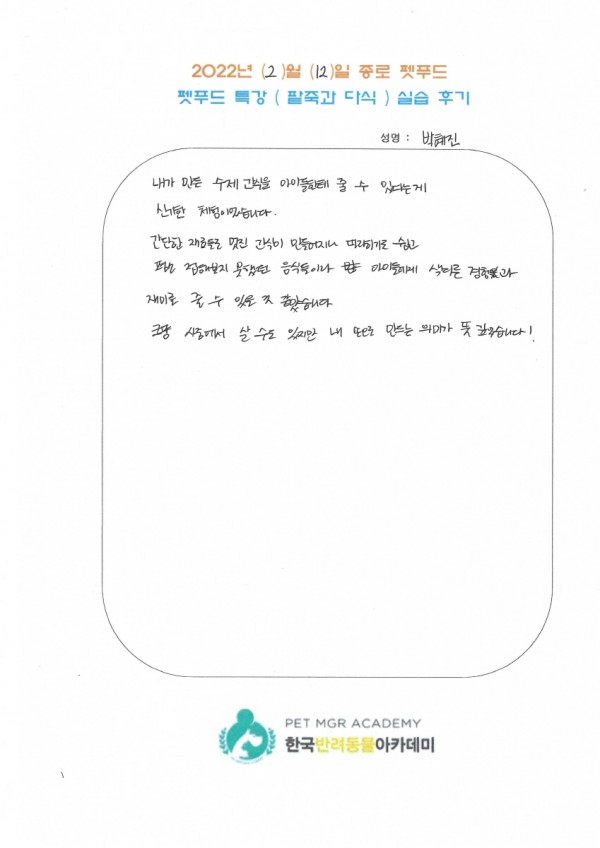 2022년 (2)월 (12)일 종로 펫푸드
펫푸드 특강 ( 팥죽과 다식 ) 실습 후기
성명 : 박혜진
내가 만든 수제 간식을 아이들한테 줄 수 있다는게
신기한 체험이었습니다.
간단한 재료들로 멋진 간식이 만들어지니 따라하기도 쉽고
평소 접해보지 못했던 음식들이라 아이들에게 색다른 경험과
재미로 줄 수 있을 것 같습니다
시중에서 살 수도 있지만 내 만드는 의미가 뜻 깊었습니다!
PET MGR ACADEMY
한국반려동물아카데미